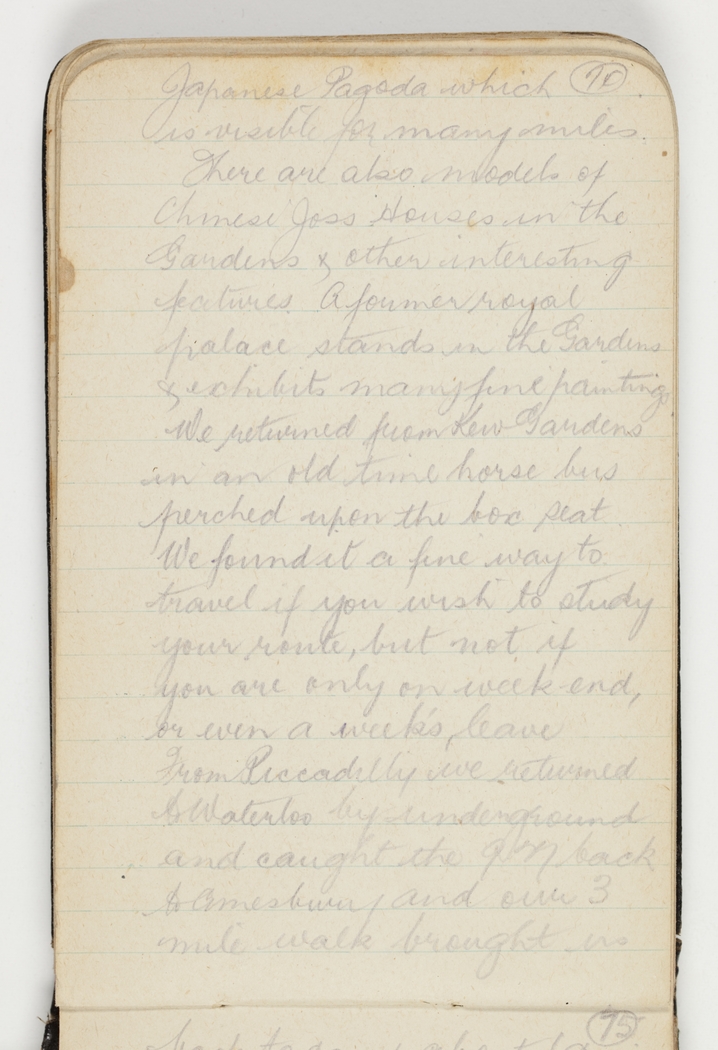 Japanese Pagoda which
is visible for many miles.
There are also models of
Chinese Joss Houses in the
Gardens & other interesting
features. A former royal
palace stands in the Gardens
& exhibits many fine paintings
We returned from Kew Gardens
in an old time horse bus
perched upon the box seat.
We found it a fine way to
travel if you wish to study
your route, but not if
you are only on week-end,
or even a week's, leave
From Piccadilly we returned
to Waterloo by underground
and caught the back
to Amesbury and our 3
mile walk brought us
75